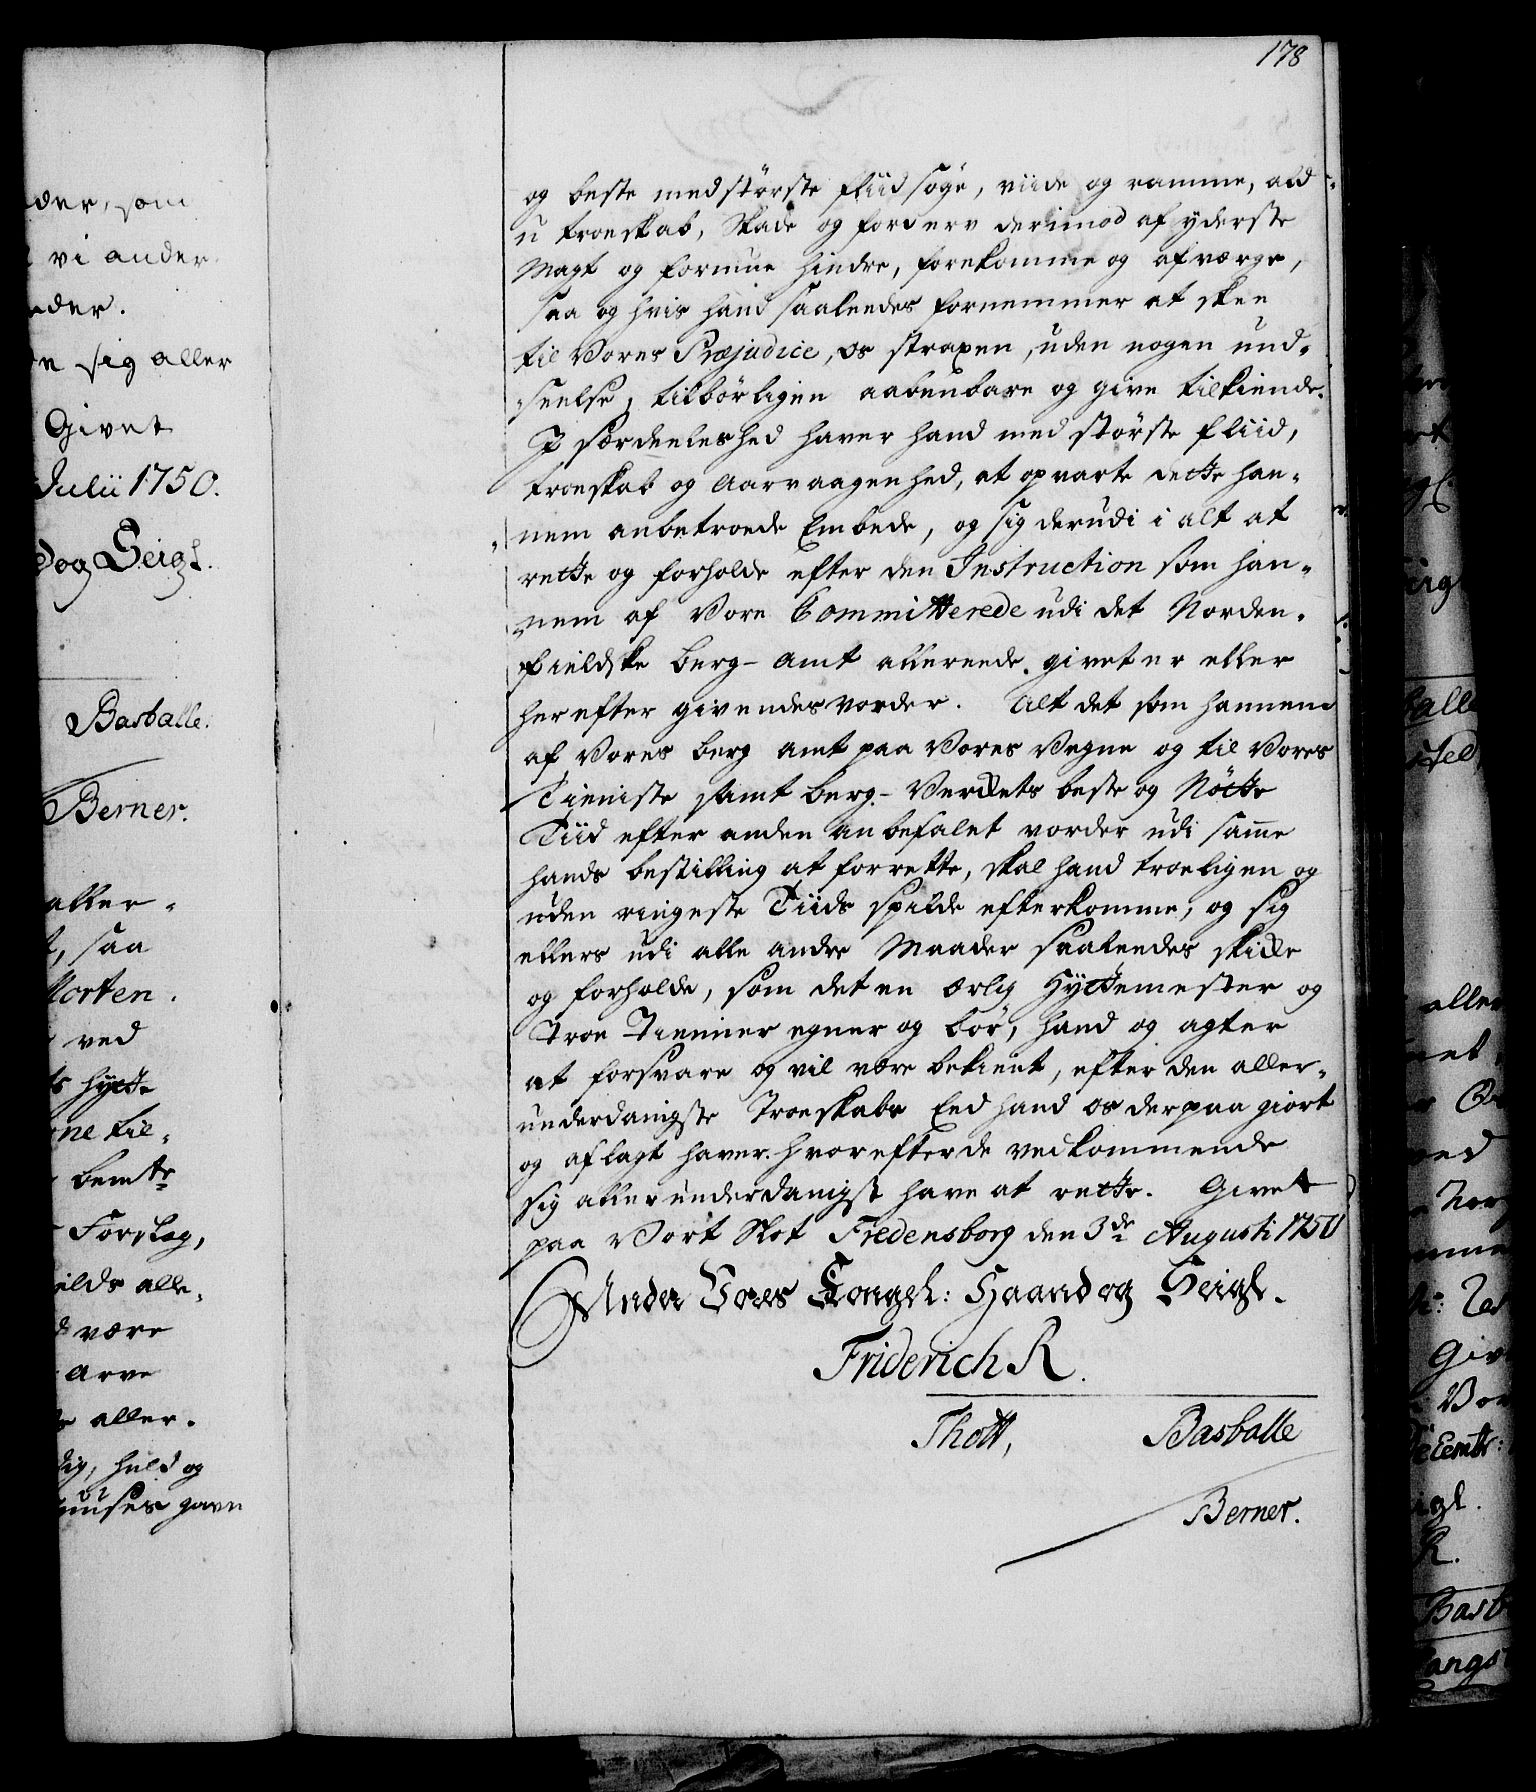 178
og beste med største fliid søge, viide og ramme, ald
u troeskab, Skade og forderv derimod af yderste
Magt og formue hindre, forekomme og afværge,
saa og hvis hand saaleedes fornemmer at skee
til Vores Præjudice, os straxen, uden nogen und-
seelse, tilbørligen aabenbare og give tilkiende.
I særdeeleshed haver hand med største fliid,
troeskab og Aarvaagenhed, at opvarte dette han-
nem anbetroede Embede, og sig derudi i alt at
rette og forholde efter den Instruction som han-
nem af Vore Committerede udi det Norden-
fieldske Berg-Amt allereede givet er eller
herefter givendes vorder. Alt det som hannem
af Vores Berg Amt paa Vores Vegne og til Vores
Tieniste samt Berg-Verkets beste og Nøtte
Tiid efter anden anbefalet vorder udi samme
hands bestilling at forrette, skal hand troeligen og
uden ringeste Tiids spilde efterkomme, og sig
ellers udi alle andre Maader saaleedes skikke
og forholde, som det en ærlig Hyttemester og
Troe Tienner egner og bør, hand og agter
at forsvare og vil være bekient, efter den aller-
underdanigste Troeskabs Eed hand os derpaa giort
og aflagt haver. hvorefter de vedkommende
sig allerunderdanigst have at rette. Givet
paa Vort Slot Fredensborg den 3de Augusti 1750
Under Vores Kongel: Haand og Seigl.
Friderich R.
Thott, Basballe
Berner.
der, som
vi ander
sig aller
Givet
Julii 1750.
og Seigl.
Basballe.
Berner.
aller-
saa
Morten
ved
hytte
til-
bemte
Forslag,
alle-
være
Arve
aller-
huld og
huuses gavn